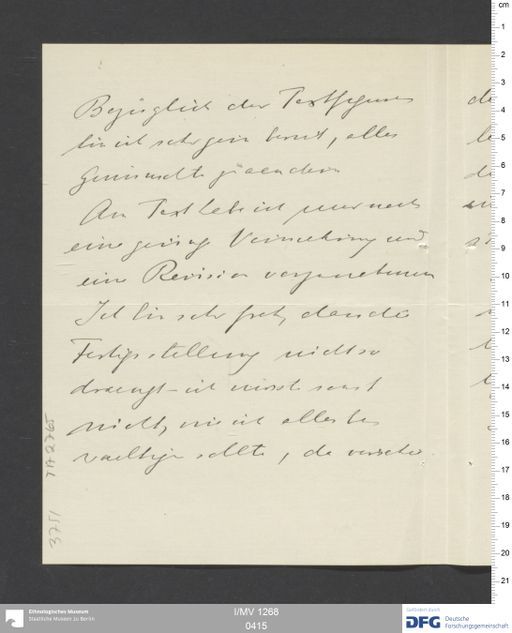 Bezüglich der Textfiguren
bin ich sehr gern bereit, alles
Gewünschte zu aendern
Am Text habe ich nur noch
eine geringe Vermehrung und
eine Revision vorzunehmen
Ich bin sehr froh, dass die
Fertigstellung nicht so
draengt - ich wüsste sonst
nicht, wie ich alles be
waeltigen sollte, da
de
le
3751
I/MV 1268
0415
Ethnologisches Museum
Staatliche Museen zu Berlin
Gefördert durch
DFG
Deutsche
Forschungsgemeinschaft
cm
1
2
3
4
5
6
7
8
9
10
11
12
13
14
15
16
17
18
19
20
21